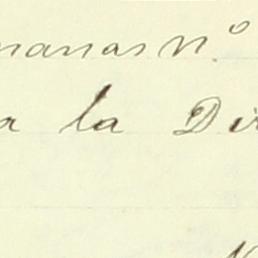 nanas Nº
a la Dir